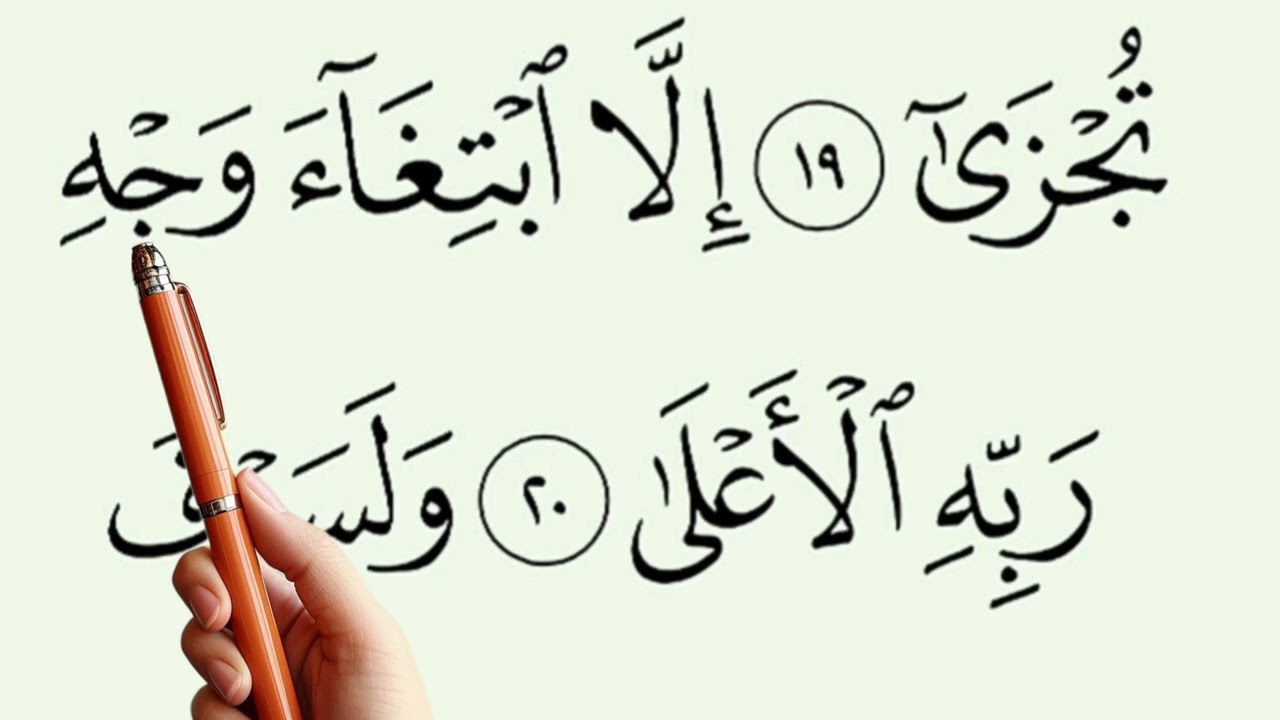 تُجْزَىٰٓ ١٩ إِلَّا ٱبْتِغَآءَ وَجْهِ
رَبِّهِ ٱلْأَعْلَىٰ ٢٠